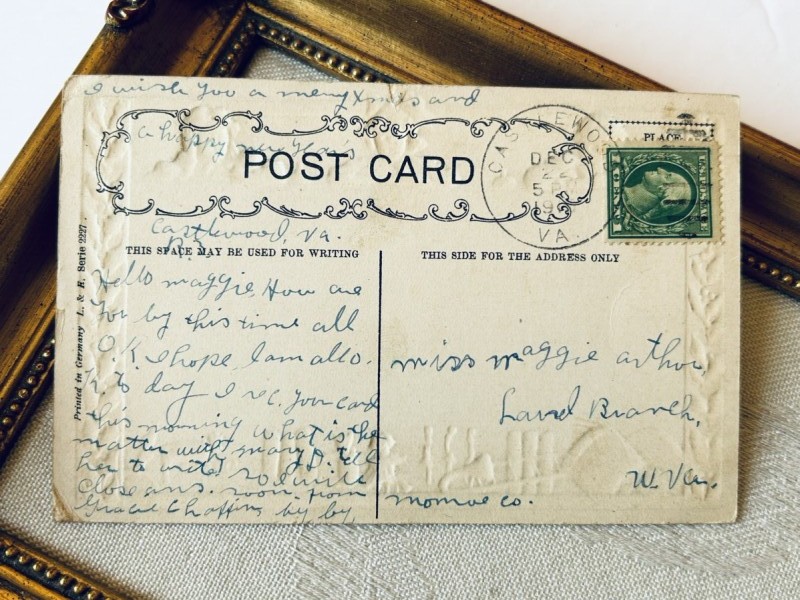 I wish you a merry Xmas and
a happy new Year's
POST CARD
CASTLEWOOD
DEC
22
5 P
19
VA.
PLACE
Castlewood, Va.
R. 3.
THIS SPACE MAY BE USED FOR WRITING
THIS SIDE FOR THE ADDRESS ONLY
Printed in Germany L. & R. Serie 2227.
Hello maggie, How are
you by this time all
O.K. I hope. I am all o.
K. to day I rec. your card
this morning what is the
matter with mary J.D. tell
her to write. So I will
close ans. soon. from
Gracie Chaffin, by by
miss maggie arthur,
Laurel Branch,
W. Va.
monroe co.